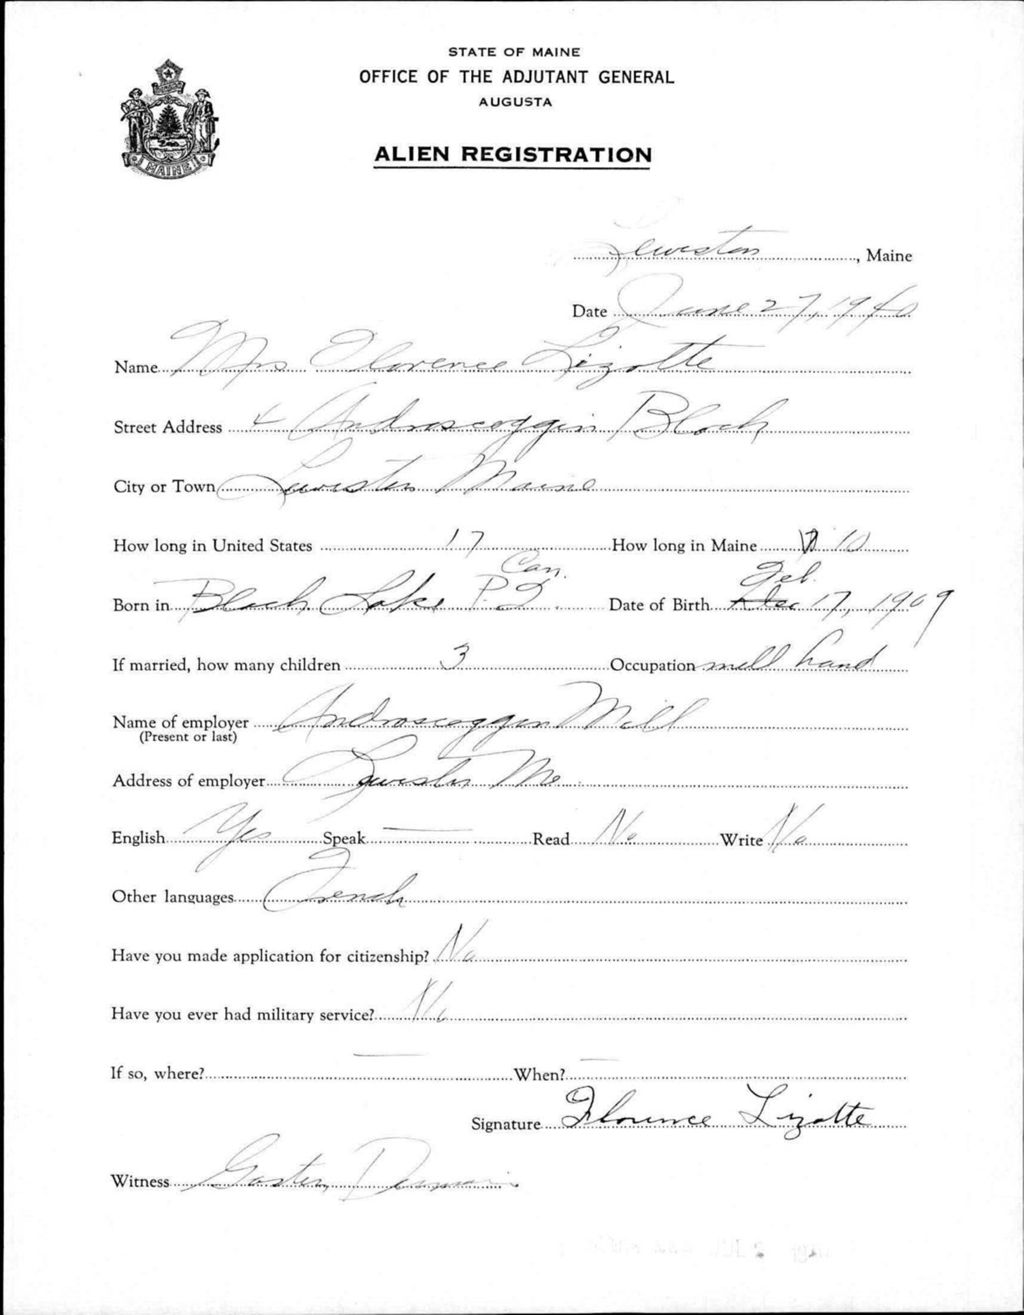 STATE OF MAINE
OFFICE OF THE ADJUTANT GENERAL
AUGUSTA
MAINE
ALIEN REGISTRATION
Lewiston, Maine
Date June 27, 1940
Name Mrs Florence Lizotte
Street Address 4 Androscoggin Block
City or Town Lewiston Maine
How long in United States 17 How long in Maine 10
Born in Black Lake P.Q. Can. Date of Birth Dec Feb. 17, 1909
If married, how many children 3 Occupation mill hand
Name of employer Androscoggin Mill
(Present or last)
Address of employer Lewiston Me.
English Yes Speak — Read No Write No
Other languages French
Have you made application for citizenship? No
Have you ever had military service? No
If so, where? — When? —
Signature Florence Lizotte
Witness